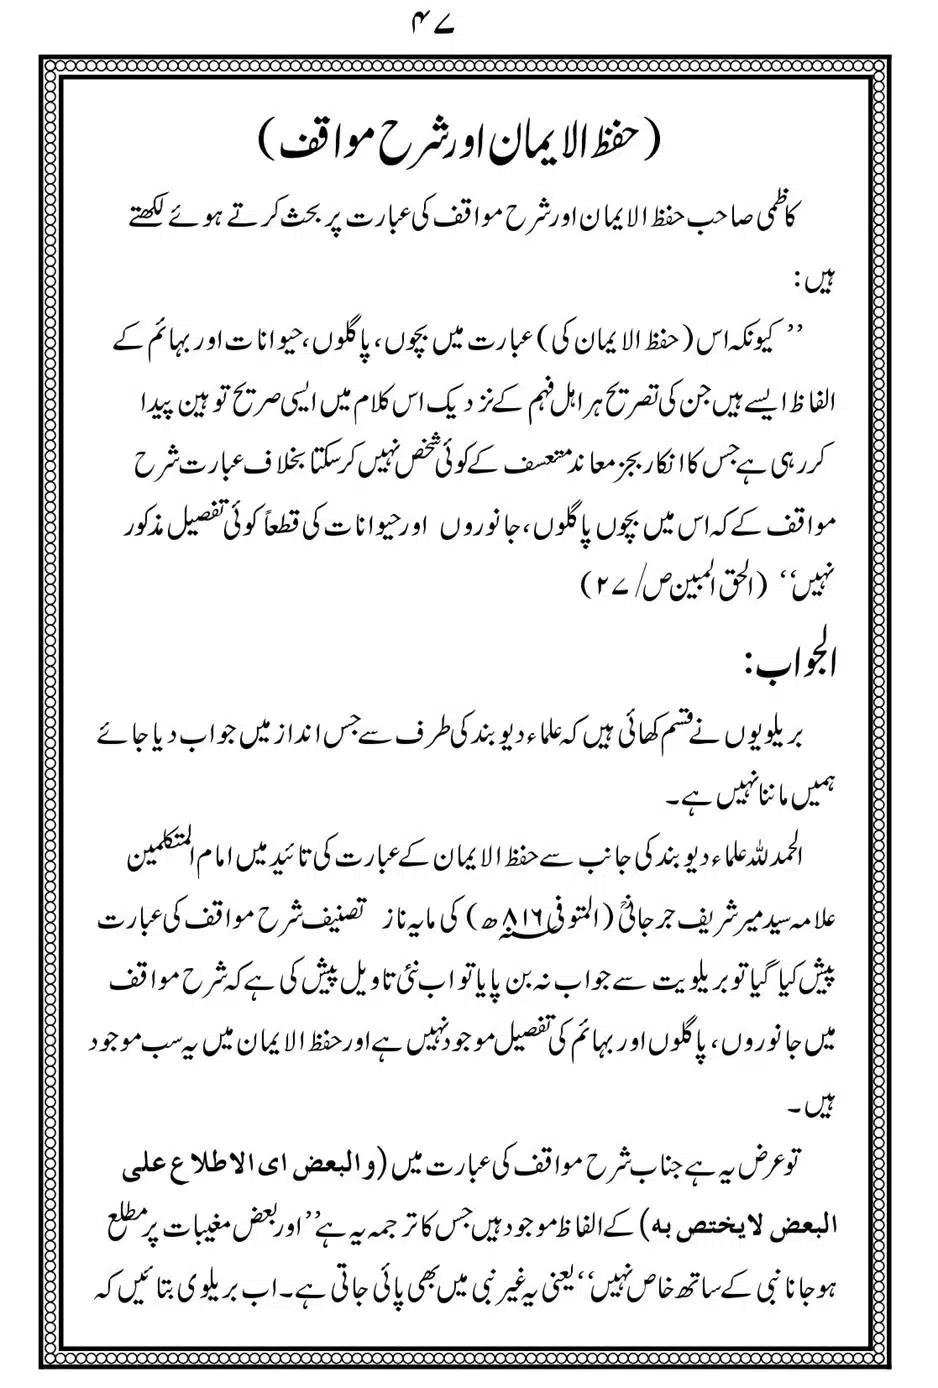 ۴۷
(حفظ الایمان اور شرح مواقف)
کاظمی صاحب حفظ الایمان اور شرح مواقف کی عبارت پر بحث کرتے ہوئے لکھتے
ہیں:
’’ کیونکہ اس (حفظ الایمان کی) عبارت میں بچوں، پاگلوں، حیوانات اور بہائم کے
الفاظ ایسے ہیں جن کی تصریح ہر اہل فہم کے نزدیک اس کلام میں ایسی صریح توہین پیدا
کر رہی ہے جس کا انکار بجز معاند متعسف کے کوئی شخص نہیں کر سکتا بخلاف عبارت شرح
مواقف کے کہ اس میں بچوں پاگلوں، جانوروں اور حیوانات کی قطعاً کوئی تفصیل مذکور
نہیں‘‘ (الحق المبین ص/۲۷)
الجواب:
بریلویوں نے قسم کھائی ہیں کہ علماء دیوبند کی طرف سے جس انداز میں جواب دیا جائے
ہمیں ماننا نہیں ہے۔
الحمد للہ علماء دیوبند کی جانب سے حفظ الایمان کے عبارت کی تائید میں امام المتکلمین
علامہ سید میر شریف جرجانیؒ (المتوفی ۸۱۶ھ) کی مایہ ناز تصنیف شرح مواقف کی عبارت
پیش کیا گیا تو بریلویت سے جواب نہ بن پایا تو اب نئی تاویل پیش کی ہے کہ شرح مواقف
میں جانوروں، پاگلوں اور بہائم کی تفصیل موجود نہیں ہے اور حفظ الایمان میں یہ سب موجود
ہیں۔
تو عرض یہ ہے جناب شرح مواقف کی عبارت میں (والبعض ای الاطلاع علی
البعض لایختص به) کے الفاظ موجود ہیں جس کا ترجمہ یہ ہے’’ اور بعض مغیبات پر مطلع
ہو جانا نبی کے ساتھ خاص نہیں‘‘ یعنی یہ غیر نبی میں بھی پائی جاتی ہے۔ اب بریلوی بتائیں کہ